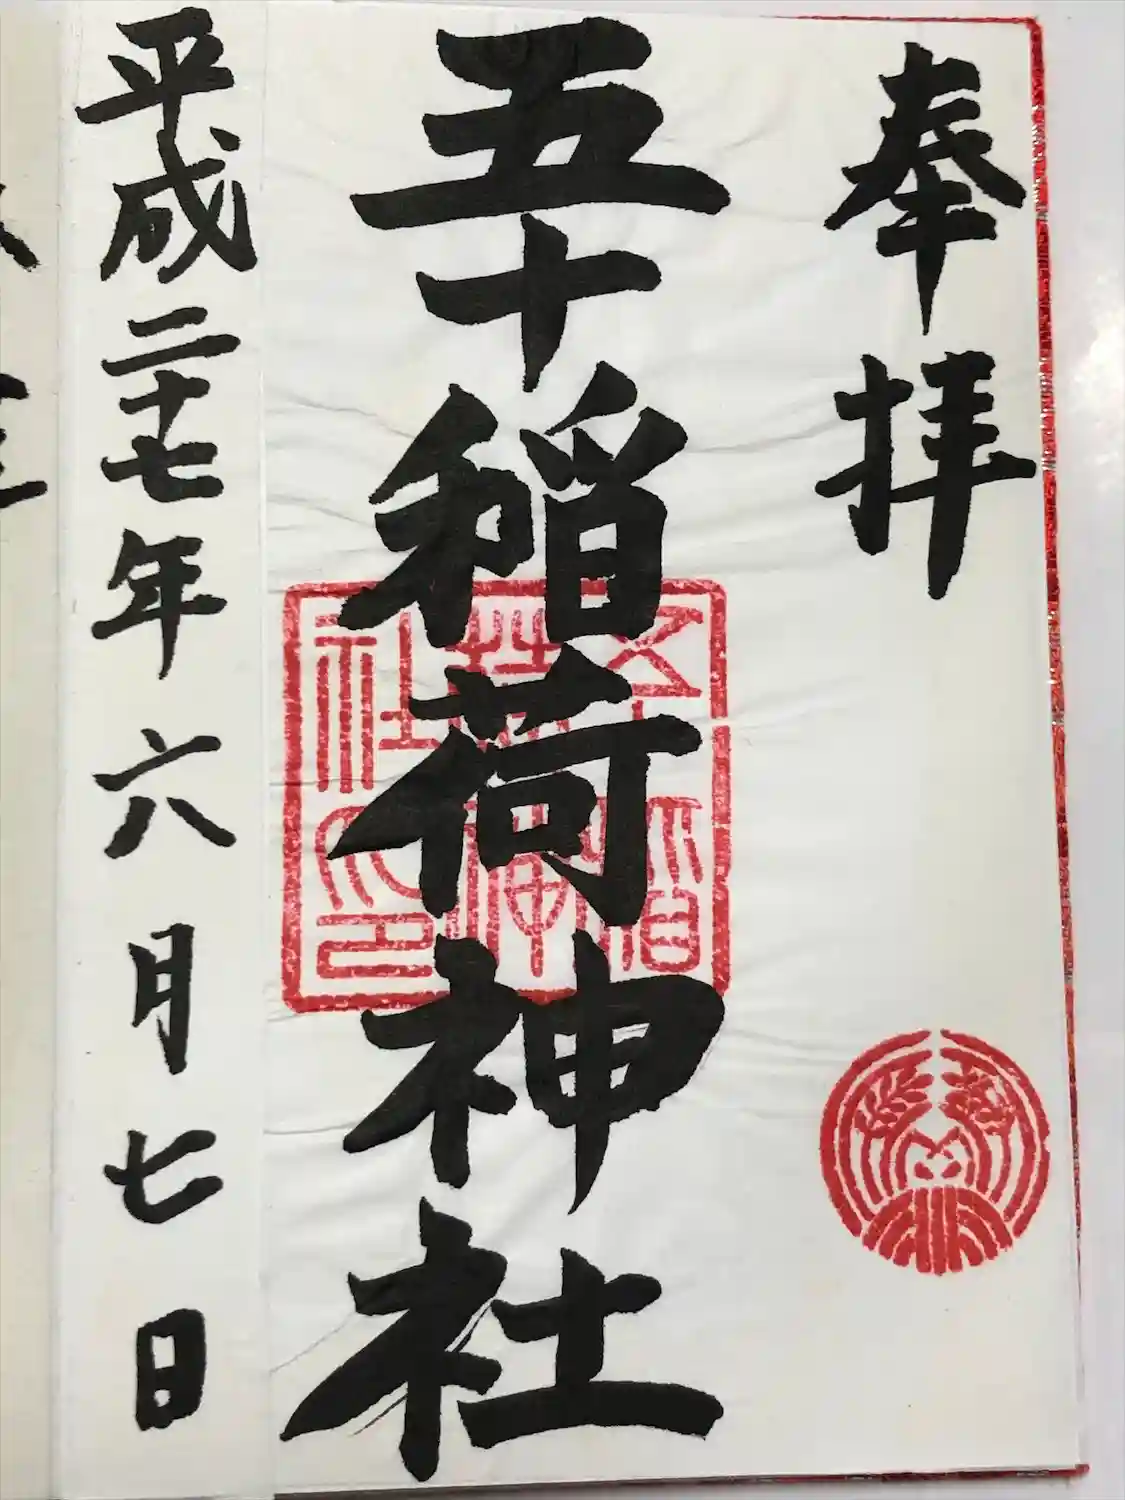 奉拝
五十稲荷神社
平成二十七年六月七日